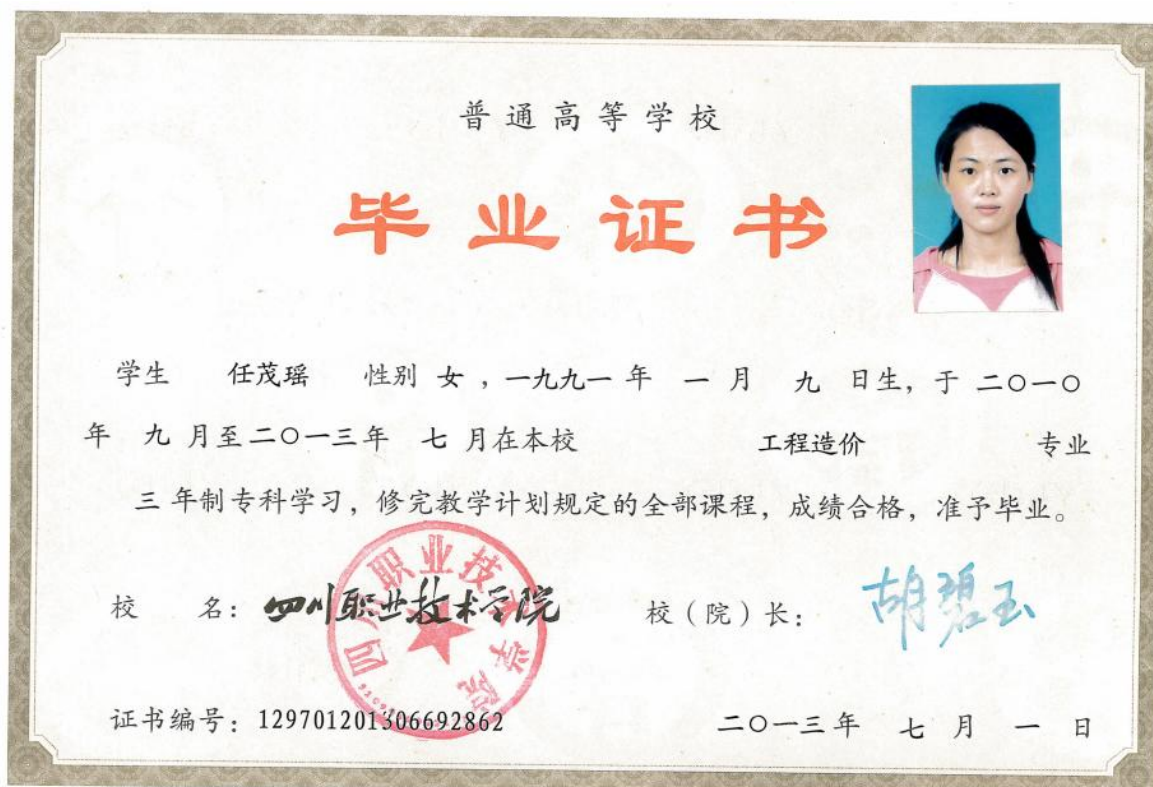 普通高等学校
毕业证书
学生 任茂瑶 性别 女 ，一九九一 年 一 月 九 日生，于 二〇一〇
年 九 月至二〇一三年 七 月在本校 工程造价 专业
三 年制专科学习，修完教学计划规定的全部课程，成绩合格，准予毕业。
校 名：四川职业技术学院 校（院）长：胡碧玉
四川职业技术学院
证书编号：129701201306692862 二〇一三年 七 月 一 日